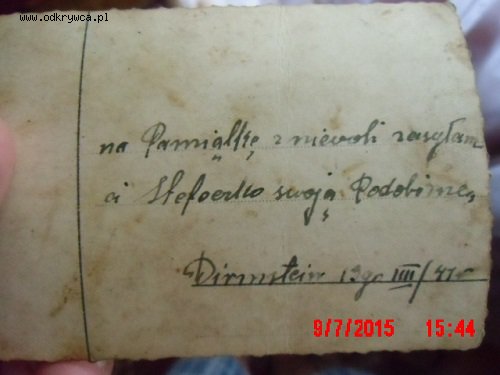 www.odkrywca.pl
na Pamiątkę z niewoli zasyłam
ci swoją Podobiznę,
Dirmstein 13go IIII/41r
9/7/2015 15:44